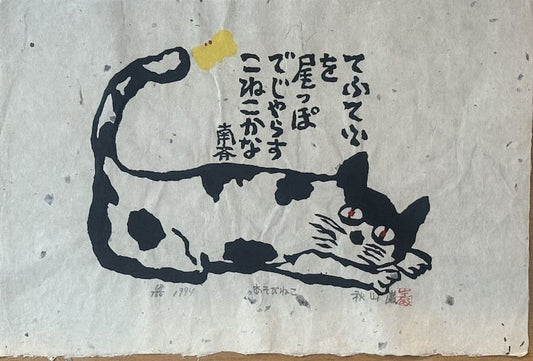 てふてふ
を
尾っぽ
でじゃらす
こねこかな
南斉
1994
あそびねこ
秋山巌